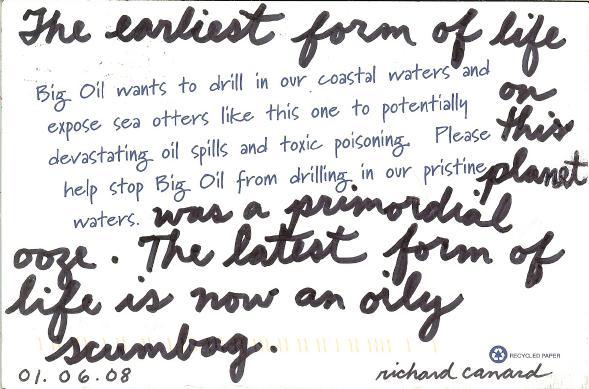 The earliest form of life
on
this
planet
Big Oil wants to drill in our coastal waters and
expose sea otters like this one to potentially
devastating oil spills and toxic poisoning. Please
help stop Big Oil from drilling in our pristine
waters.
was a primordial
ooze. The latest form of
life is now an oily
scumbag.
RECYCLED PAPER
01.06.08
richard canard